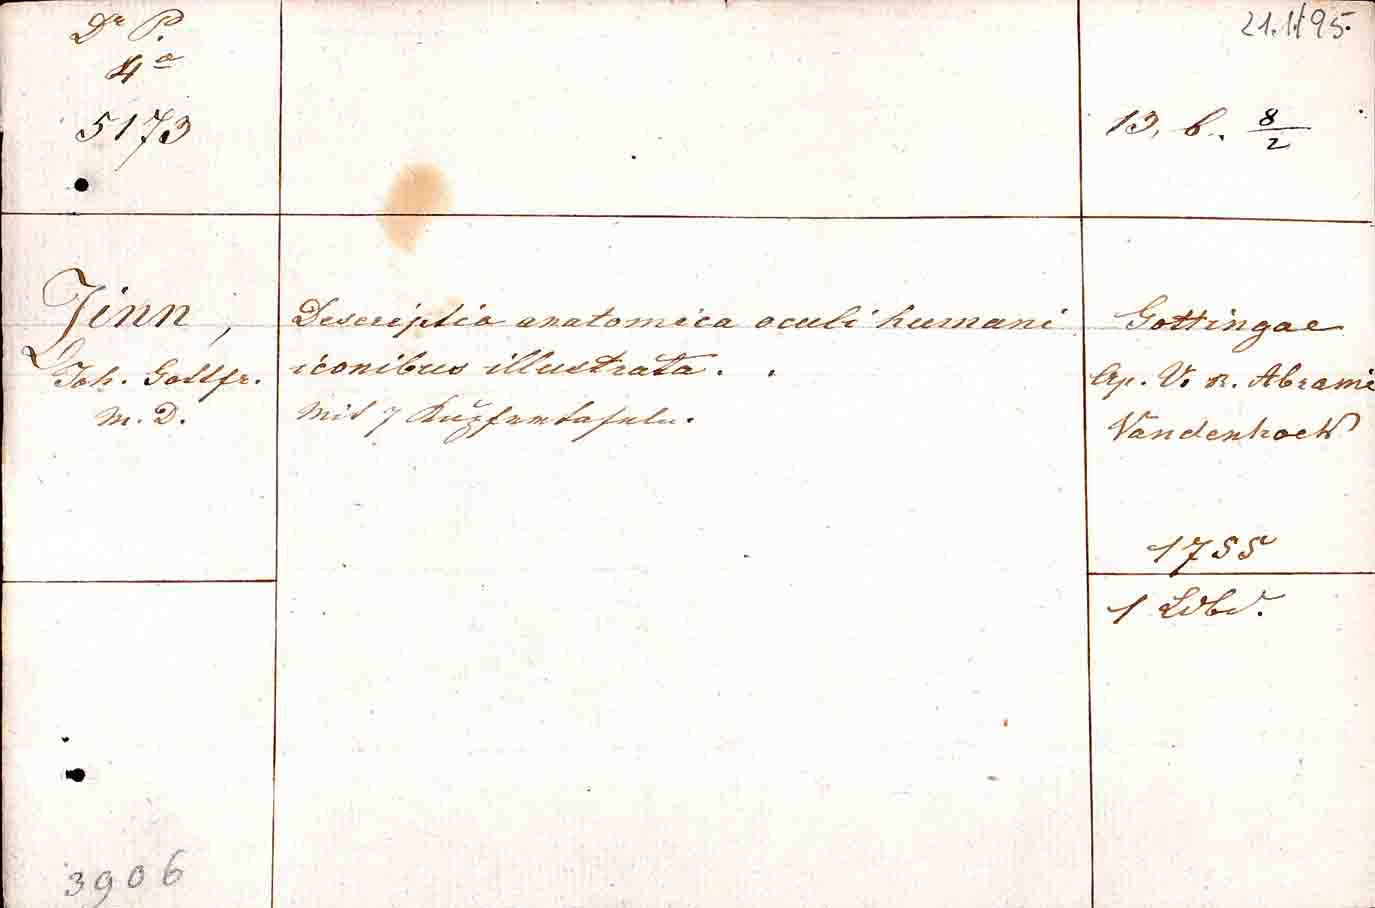 Dr P.
4o
5173
21.1.95.
13. b. 8/2
Zinn,
Joh. Gottfr.
M. D.
Descriptio anatomica oculi humani
iconibus illustrata.
Mit 7 Kupfertafeln.
Gottingae
Ap. V. B. Abrami
Vandenhoek
1755
1 Ldbd.
3906